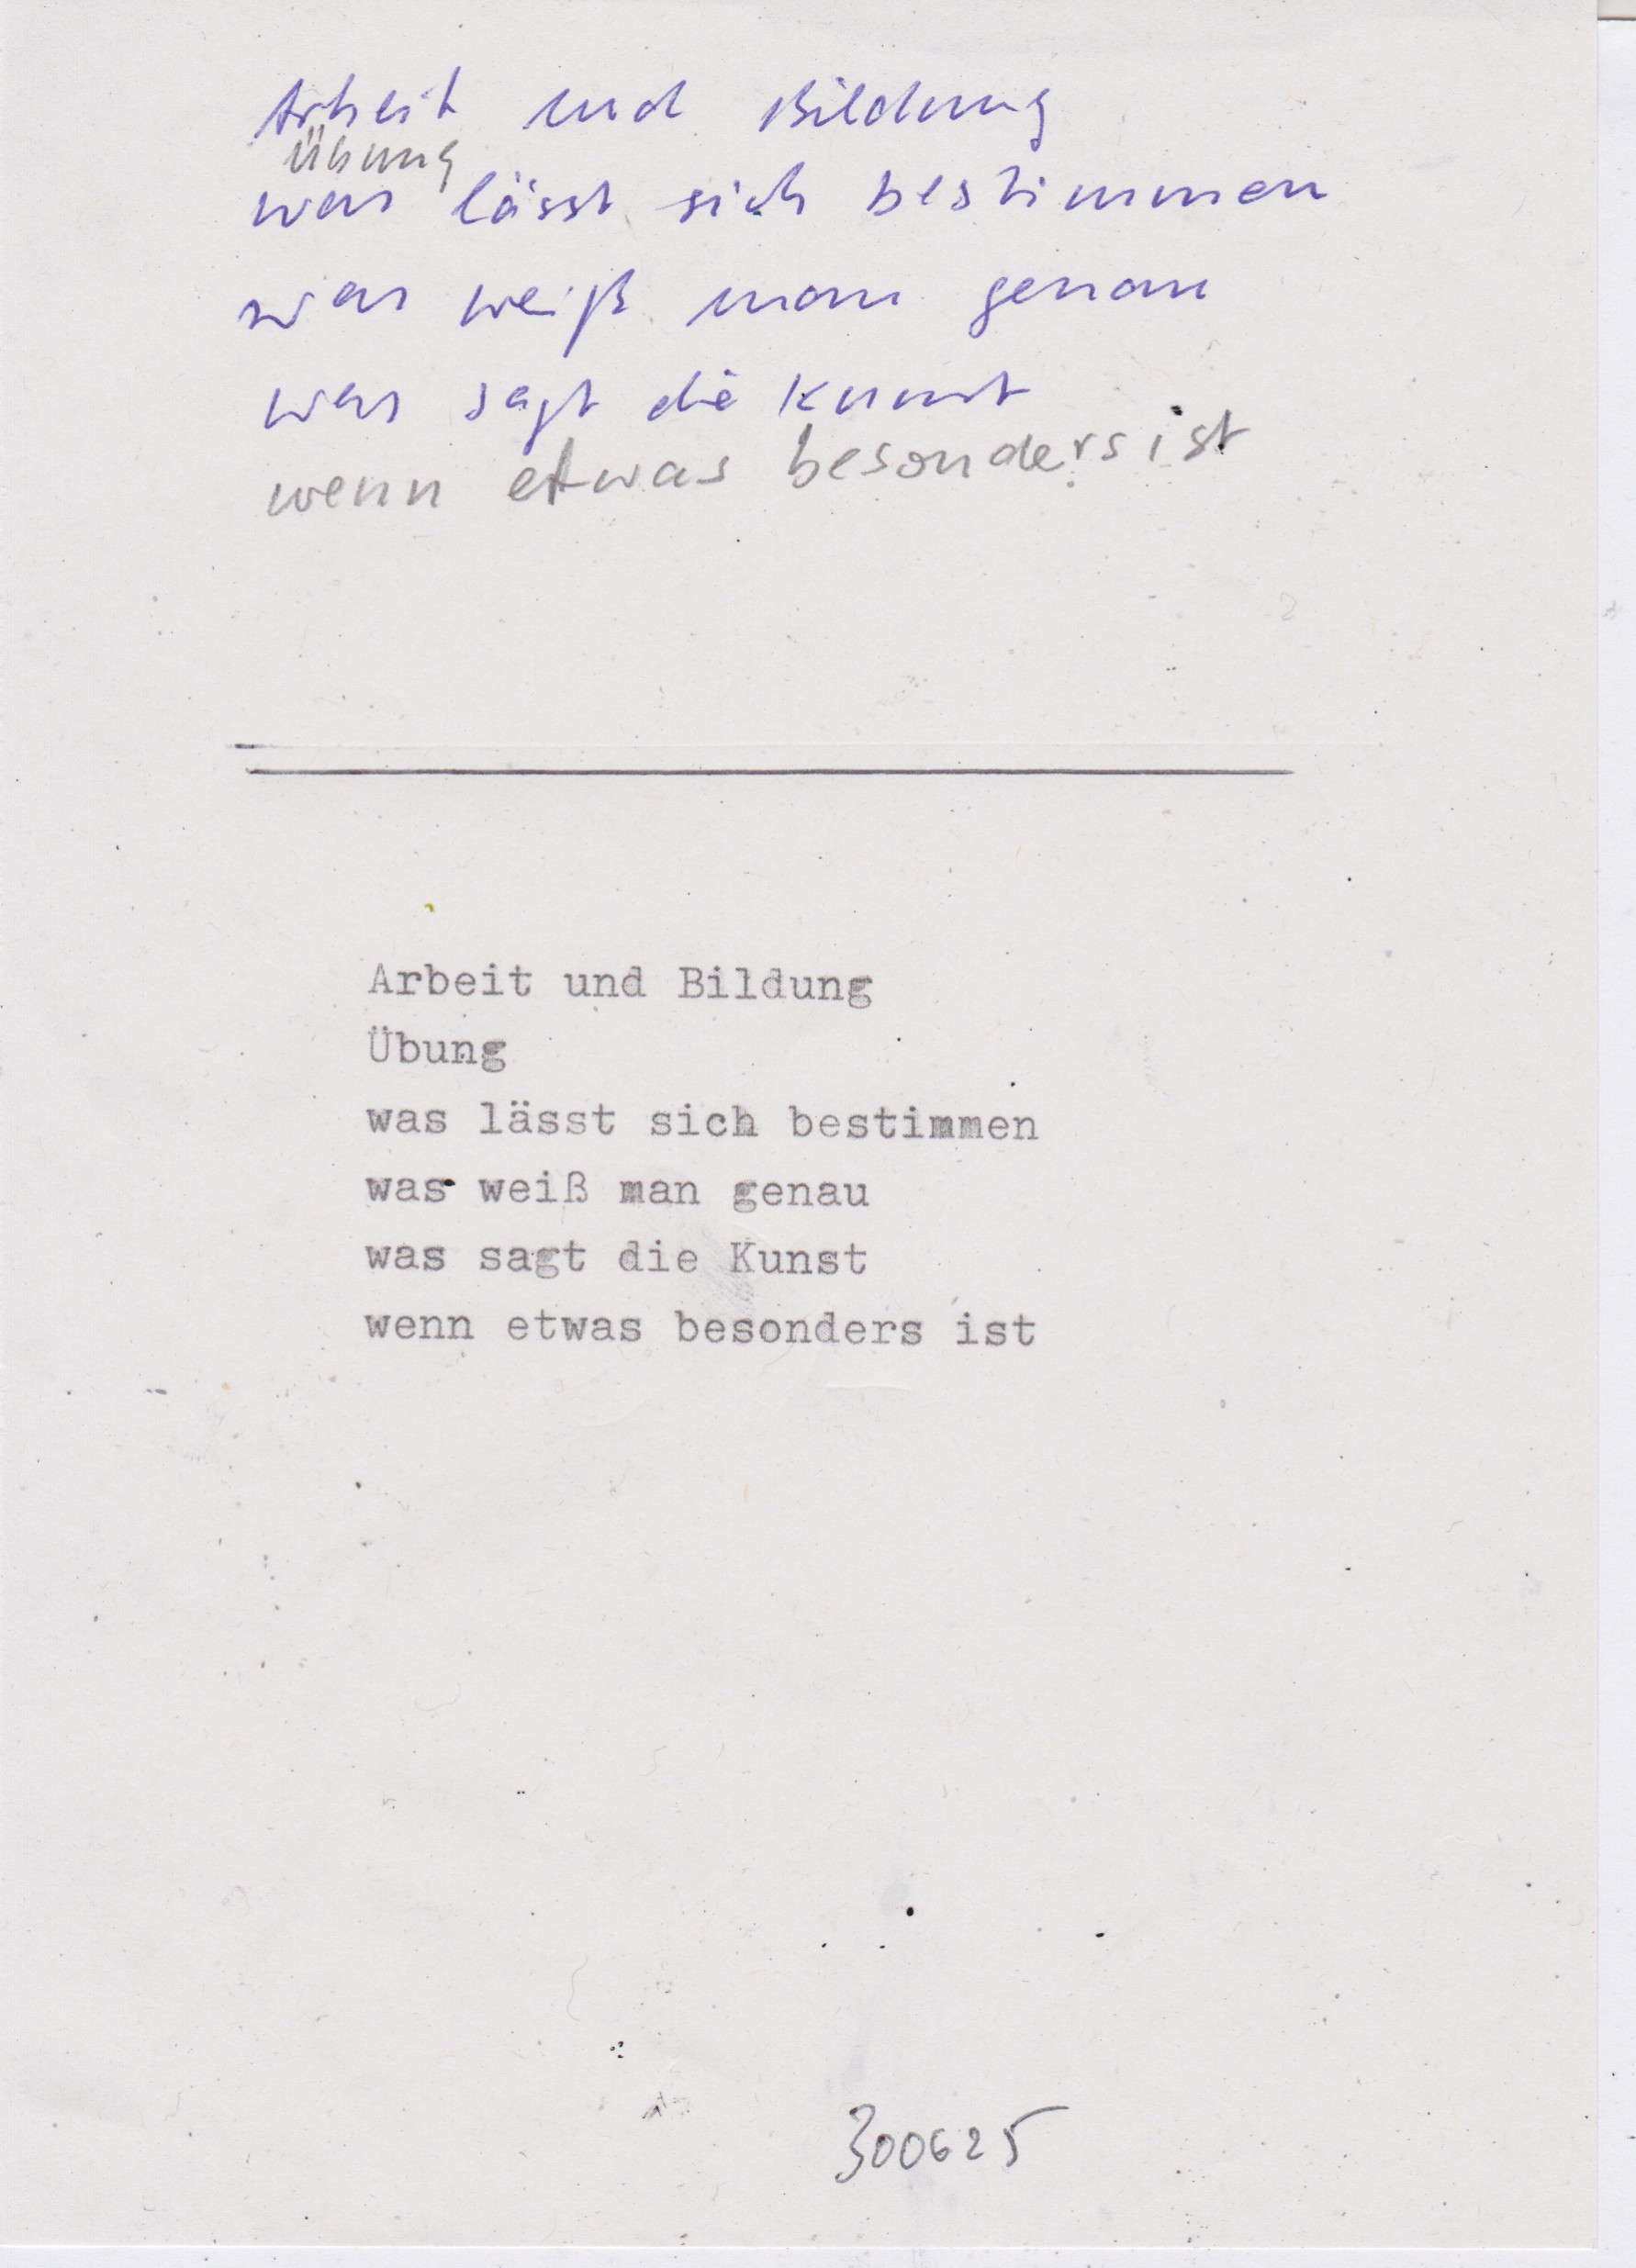 Arbeit und Bildung
Übung
was lässt sich bestimmen
was weiß man genau
was sagt die Kunst
wenn etwas besonders ist
Arbeit und Bildung
Übung
was lässt sich bestimmen
was weiß man genau
was sagt die Kunst
wenn etwas besonders ist
300625